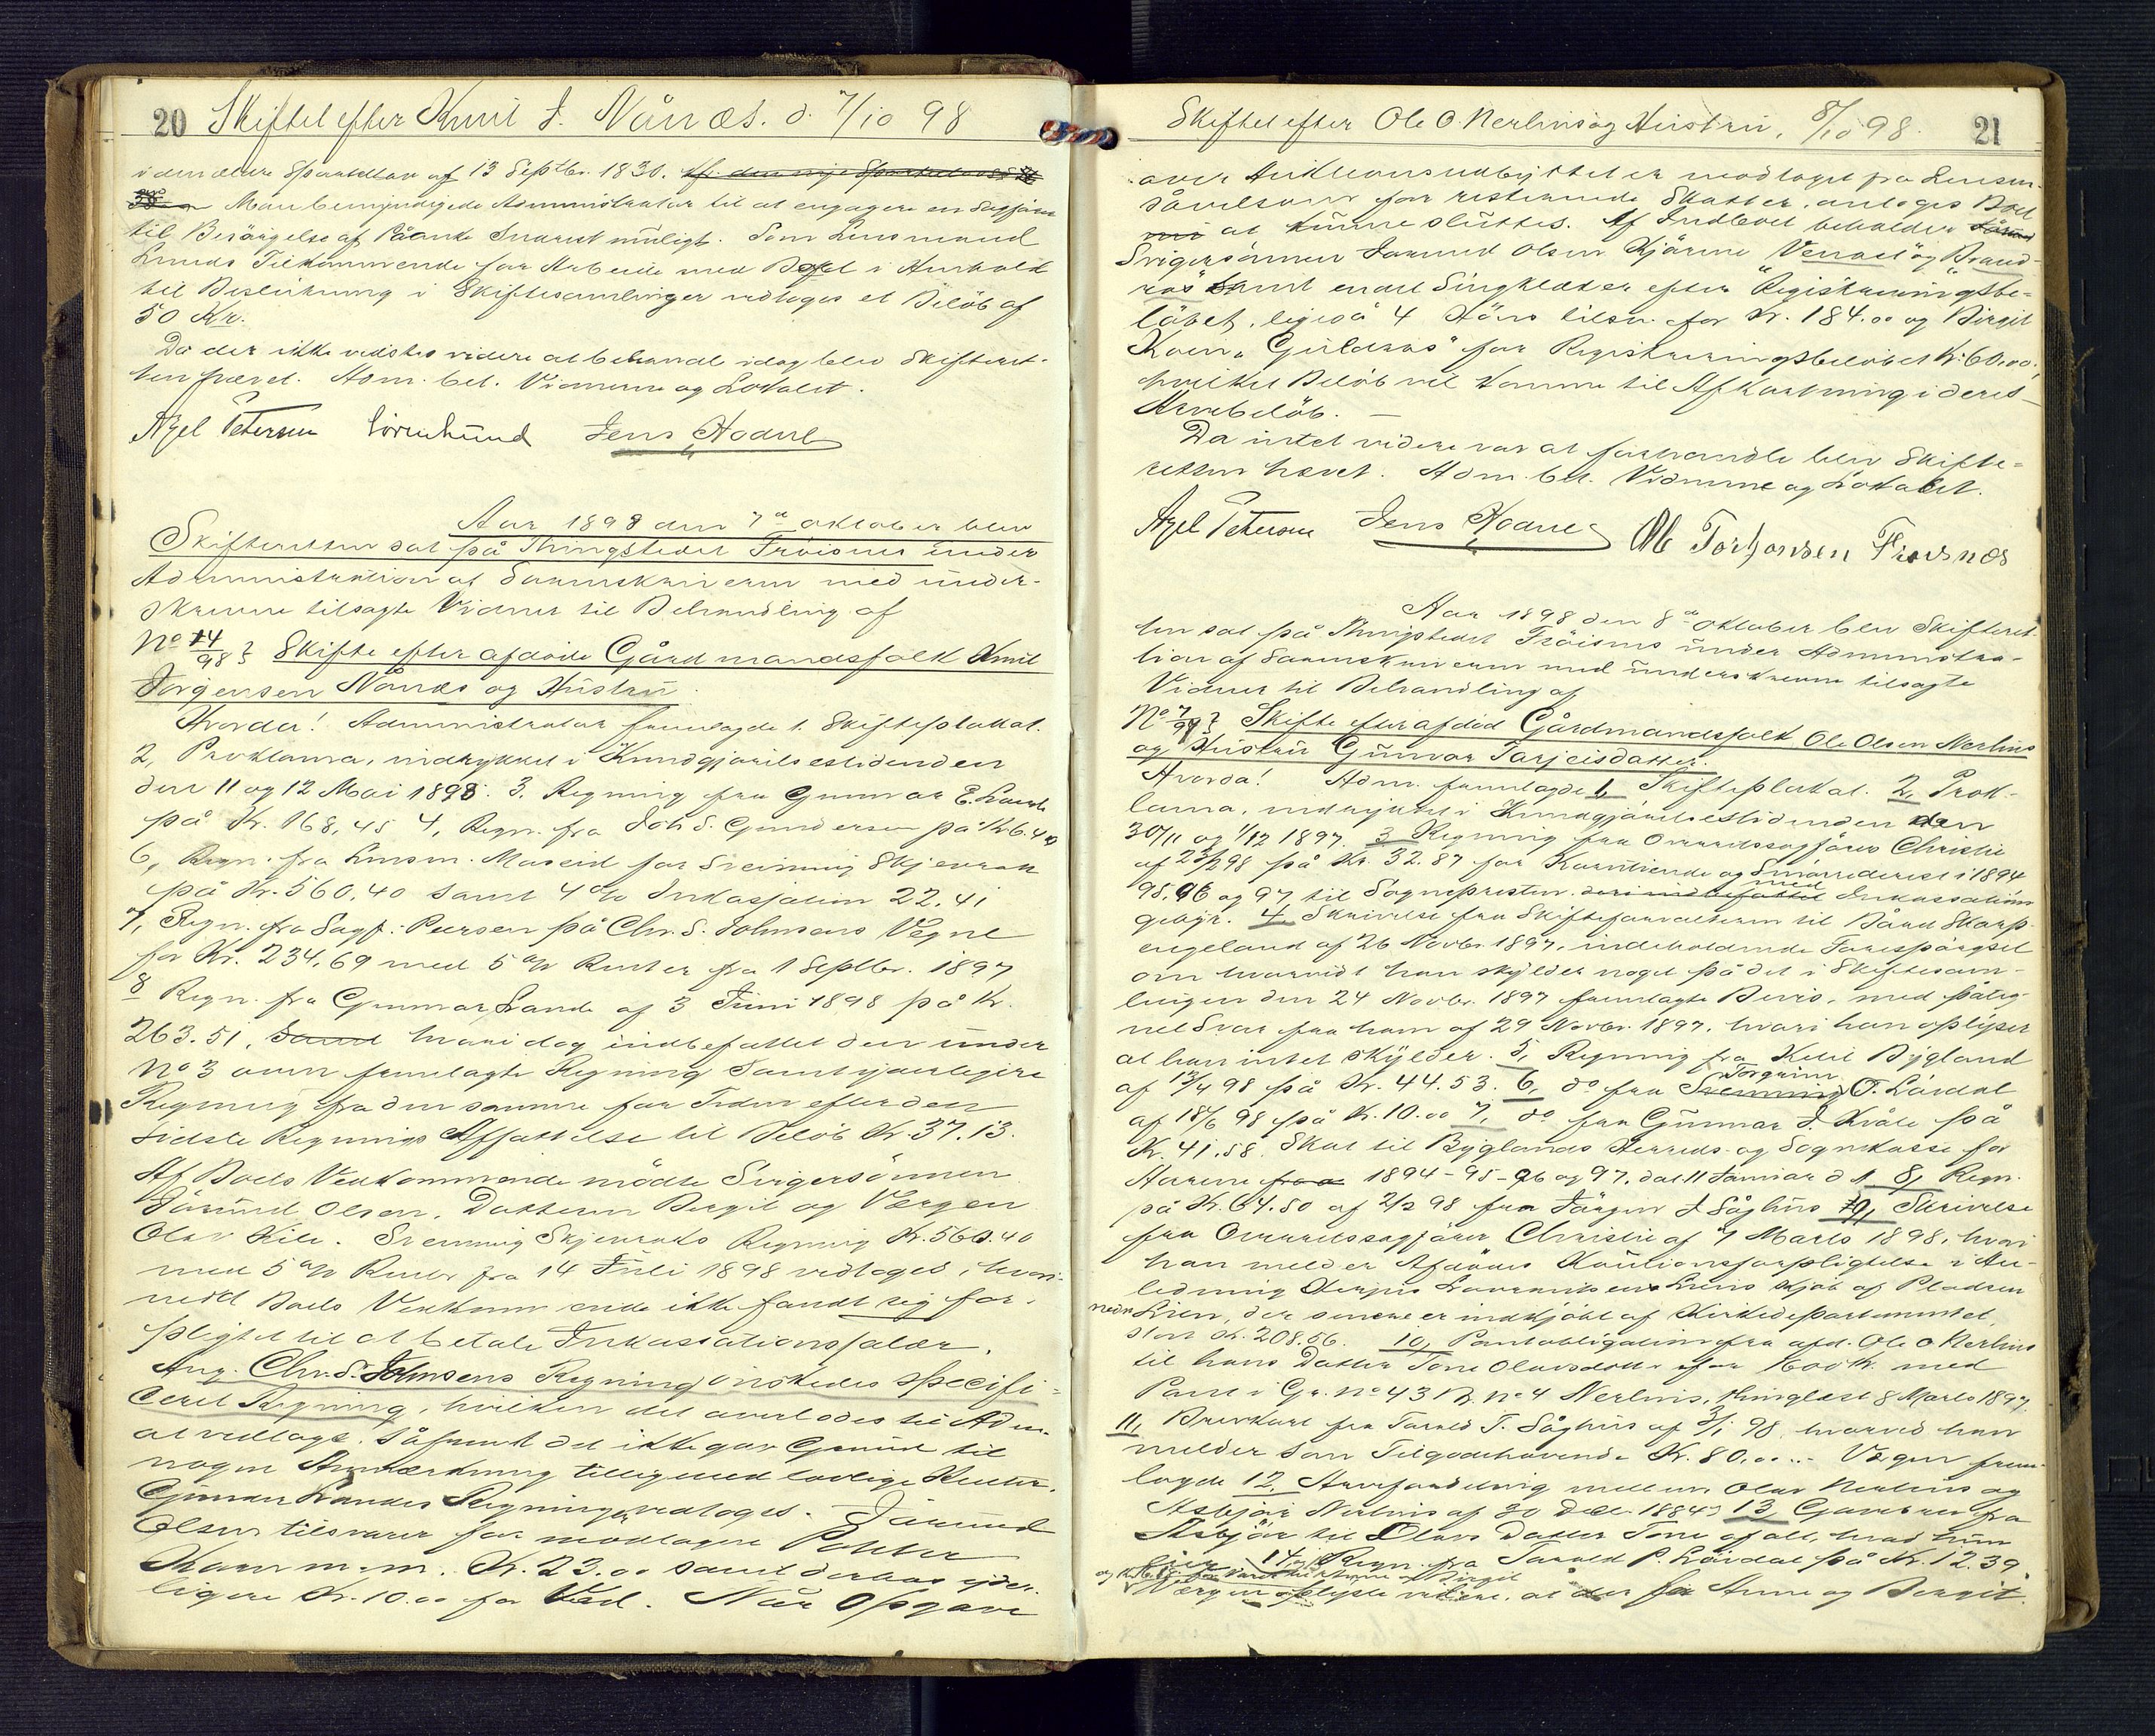 20 Skiftet efter Knut J. Nånæs. d. 7/10 98
i den ældre Sportellov af 13 Septbr. 1830.
Man bemyndigede Administrator til at engagere en Sagfører
til Besørgelse af Påanke snarest muligt. Som Lensmand
Lunds Tilkommende for Arbeide med Boet i Henhold
til Beslutning i Skiftesamlinger vedtoges et Beløb af
50 Kr.
Da der ikke vidstes videre at behandle idag blev Skifteret-
ten hævet. Adm. bet. Vidnerne og Lokalet.
Axel Petersen Jens Hodne
Aar 1898 den 7de oktober blev
Skifteretten sat på Thingstedet Frøisnes under
Administration af Sorenskriveren med under-
skrevne tilsagte Vidner til Behandling af
No 14/98 Skifte efter afdøde Gårdmandsfolk Knut
Jørgensen Nånæs og Hustru.
Hvorda! Administrator fremlagde 1. Skifteplakat.
2, Proklama, indrykket i Kundgjørelsestidenden
den 11 og 12 Mai 1898. 3. Regning fra Gunnar E. Lande
på Kr. 168,45 4, Regn. fra Joh S. Gundersen på Kr 6.40
6, Regn. fra Lensm. Moseid for Svenning Skjevrak
på Kr. 560,40 samt 4 % Inkassation 22.41
7, Regn. fra Sagf. Peersen på Chr. S. Johnsens Vegne
for Kr. 234,69 med 5 % Renter fra 1 Septbr. 1897
8 Regn. fra Gunnar Lande af 3 Juni 1898 på Kr.
263.51, hvori dog indbefattet den under
No 3 oven fremlagte Regning samt yderligere
Regning fra den samme for Tiden efter den
sidste Regnings Affattelse til Beløb Kr. 37.13.
Af Boets Vedkommende mødte Svigersønnen
Jørund Olsen, Datteren Bergit og Værgen
Olav Kile. Svenning Skjevraks Regning Kr. 560.40
med 5 % Renter fra 14 Juli 1898 vedtoges, hvori-
mod Boets Vedkommende ikke fandt sig for-
pligtet til at betale Inkassationssalær.
Ang. Chr. S. Johnsens Regning ønskedes specifi-
ceret Regning, hvilken det overlodes til Adm.
at vedtage, såfremt det ikke gav Grund til
nogen Anmærkning tilligemed lovlige Renter.
Gunnar Landes Regning vedtoges. Jørund
Olsen tilsvarer for modtagne Potter
Korn m. m. Kr. 23.00 samt derhos yder-
ligere Kr. 10.00 for Ved. Når Opgave
Skiftet efter Ole O. Nerlins og Hustru, 8/10 98. 21
over Auktionsudbyttet er modtaget fra Lensm.
såvelsom for resterende Skatter, antoges Boet
at kunne sluttes. Af Indboet beholder
Svigersønnen Jørund Olsen Kjørene Vennelög Brand-
rös samt endel Sengklæder efter Registrerings be-
løbet, ligeså 4 Høns tilsn. for Kr. 184.00 og Birgit
Koen "Guldrös" for Registreringsbeløbet Kr. 60.00,
hvilket Beløb vil komme til Afkortning i deres
Arvebeløb. –
Da intet videre var at forhandle blev Skifte-
retten hævet. Adm. bet. Vidnerne og Lokalet.
Axel Petersen Jens Hodne Ole Torjonsen Frøisnæs
Aar 1898 den 8de oktober blev Skifteret-
ten sat på Thingstedet Frøisnes under Administra-
tion af Sorenskriveren med underskrevne tilsagte
Vidner til Behandling af
No 7/97 Skifte efter afdød Gårdmandsfolk Ole Olsen Nerlins
og Hustru Gunvor Tarjeisdatter.
Hvorda! Adm. fremlagde 1, Skifteplakat. 2, Prok-
lama, indrykket i Kundgjørelsestidenden den
30/11 og 1/12 1897. 3 Regning fra Overretssagfører Christie
af 23/2 98 på Kr. 32.87 for Korntiende og Smørrederest i 1894
95, 96 og 97 til Sognepresten med Inkassations
gebyr. 4, Skrivelse fra Skifteforvalteren til Bård Skarp-
engeland af 26 Novbr. 1897, indeholdende Forespørgsel
om hvorvidt han skylder noget på det i Skiftesam-
lingen den 24 Novbr. 1897 fremlagte Bevis, med påteg-
net Svar fra ham af 29 Novbr. 1897, hvori han oplyser
at han intet skylder. 5, Regning fra Ketil Bygland
af 12/4 98 på Kr. 44.53. 6, do fra Torgrim T. Lørdal
af 18/6 98 på Kr. 10.00 7, do fra Gunnar J. Kråle på
Kr. 41.58. Skat til Byglands Herreds- og Sognekasse for
Aarene 1894-95-96 og 97. dat 11 Januar d A 8, Regn.
på Kr. 64.80 af 2/2 98 fra Jørgen J Såghus 9, Skrivelse
fra Overretssagfører Christie af 7 Marts 1898, hvori
han melder Afdødes Kautionsforpligtelse i An-
ledning Terjus Lauvuiksens Liens kjøb af Pladsen
nedre Lien, der senere er indkjøbt af Kirkedepartementet,
stort Kr. 208.56. 10, Pantobligation fra afd. Ole O Nerlins
til hans Datter Tone Olavsdatter for 1600 Kr. med
Pant i Gr. no 43 B. no 4 Nerlins, thinglæst 8 Marts 1897.
11, Brevkort fra Tarald T. Såghus af 3/1 98, hvorved han
melder som Tilgodehavende Kr. 80.00. – Værgen frem-
lagde 12, Arvefordeling mellem Olav Nerlins og
Asbjør Nerlins af 30 Dec. 1884, 13, Gavebrev fra
Asbjør til Olavs Datter Tone af alt, hvad hun
eier 14, Regn. fra Tarald P. Lørdal på Kr. 12.39
Værgen oplyste videre, at der for Anne og Bergit